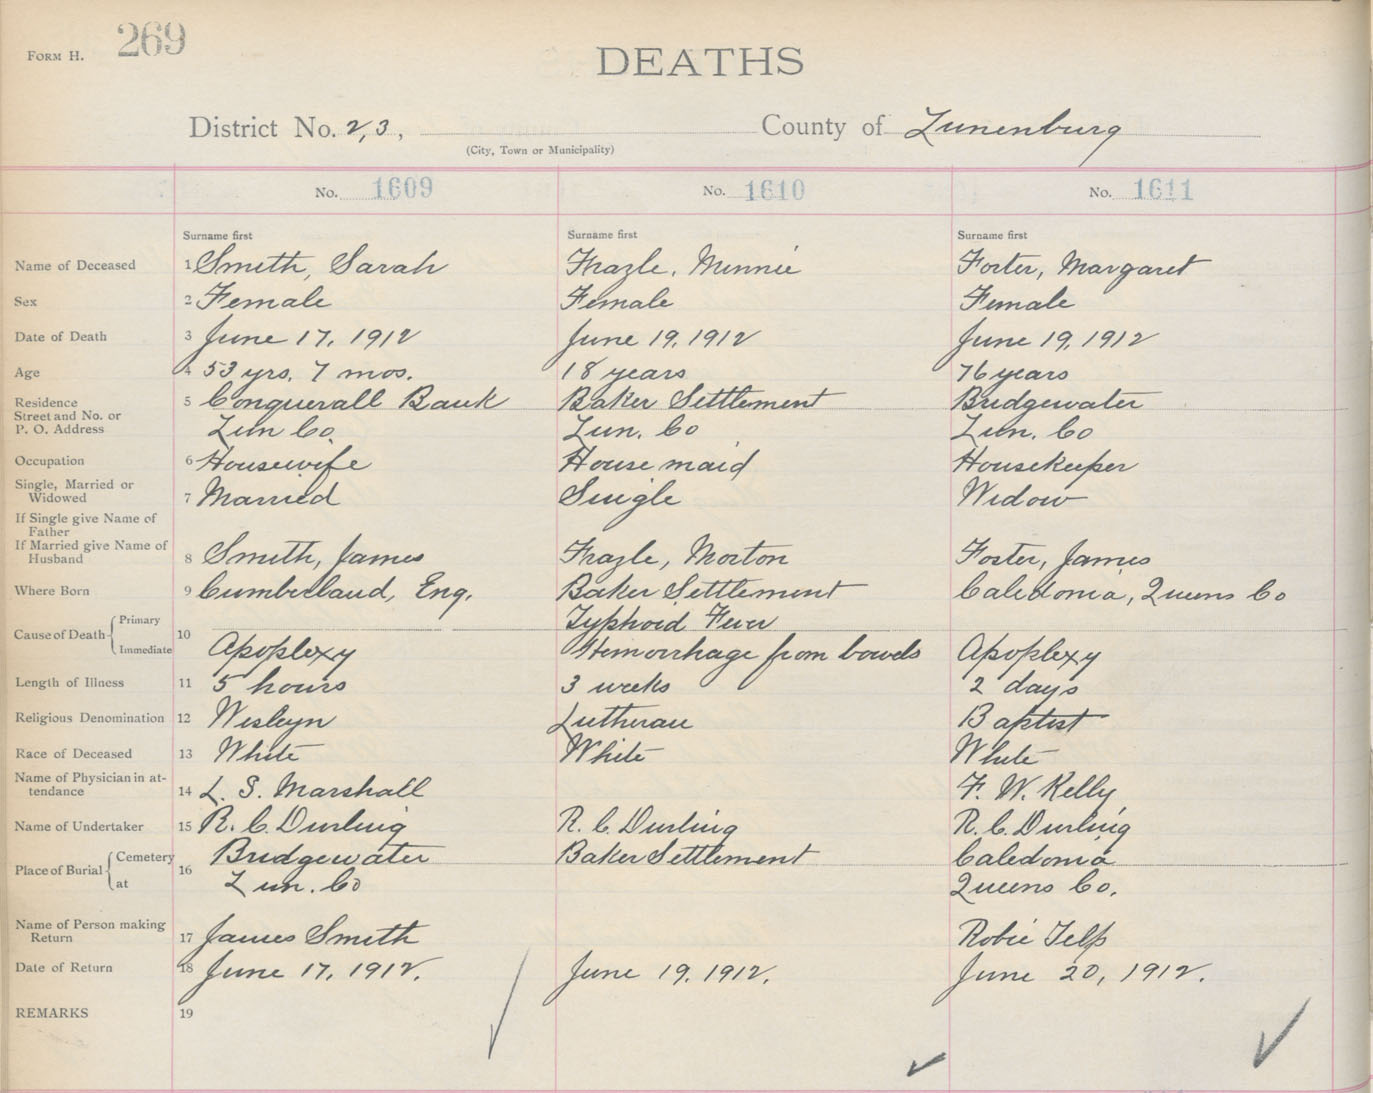 FORM H. 269
DEATHS
District No. 2,3, County of Lunenburg
(City, Town or Municipality)
No. 1609 No. 1610 No. 1611
Surname first Surname first Surname first
Name of Deceased 1 Smith, Sarah Frazle, Minnie Forter, Margaret
Sex 2 Female Female Female
Date of Death 3 June 17, 1912 June 19, 1912 June 19, 1912
Age 4 53 yrs. 7 mos. 18 years 76 years
Residence 5 Conquerall Bank Baker Settlement Bridgewater
Street and No. or
P. O. Address Lun Co. Lun. Co Lun. Co
Occupation 6 Housewife House maid Housekeeper
Single, Married or
Widowed 7 Married Single Widow
If Single give Name of
Father
If Married give Name of
Husband 8 Smith, James Frazle, Morton Foster, James
Where Born 9 Cumberland, Eng. Baker Settlement Caledonia, Queens Co
Cause of Death Primary 10 Typhoid Fever
Immediate Apoplexy Hemorrhage from bowels Apoplexy
Length of Illness 11 5 hours 3 weeks 2 days
Religious Denomination 12 Wesleyn Lutheran Baptist
Race of Deceased 13 White White White
Name of Physician in at-
tendance 14 L. S. Marshall F. W. Kelly
Name of Undertaker 15 R. C. Durling R. C. Durling R. C. Durling
Place of Burial Cemetery 16 Bridgewater Baker Settlement Caledonia
at Lun. Co Queens Co.
Name of Person making
Return 17 James Smith Robie Telf
Date of Return 18 June 17, 1912. June 19, 1912. June 20, 1912.
REMARKS 19